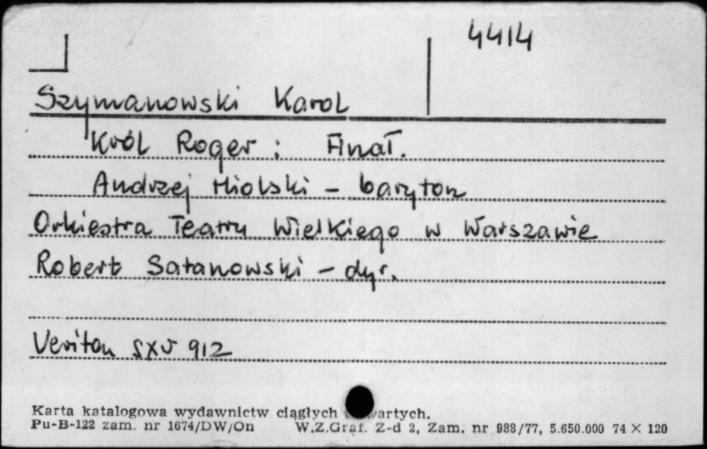 4414
Szymanowski Karol
Król Roger: Finał.
Andrzej Hiolski - baryton
Orkiestra Teatru Wielkiego w Warszawie
Robert Satanowski - dyr.
Veriton SXV 912
Karta katalogowa wydawnictw ciągłych
Pu-B-122 zam. nr 1674/DW/On W.Z.Graf. Z-d 2, Zam. nr 988/77, 5.650.000 74 × 120